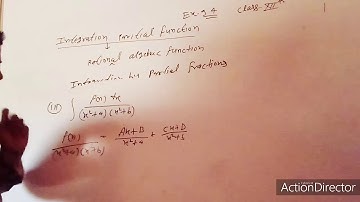 Ex-9.4 Class-XII th
Integration Partial function
Rational algebraic function
Integration by Partial fractions
(iii) ∫ f(x) dx / (x²+a)(x²+b)
f(x) / (x²+a)(x²+b) = Ax+B / x²+a + Cx+D / x²+b
ActionDirector